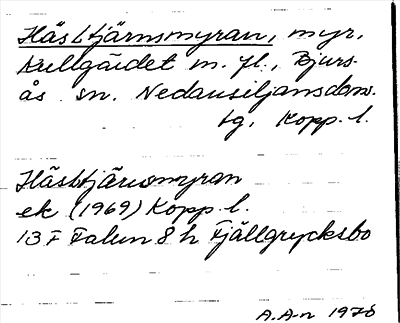 Hästtjärnsmyran, myr,
Kullgärdet m. fl., Bjurs-
ås sn. Nedansiljans dom-
sg. Kopp. l.
Hästtjärnsmyran
ek (1969) Kopp. l.
13 F Falun 8 h Fjällgrycksbo
A.A-n 1978